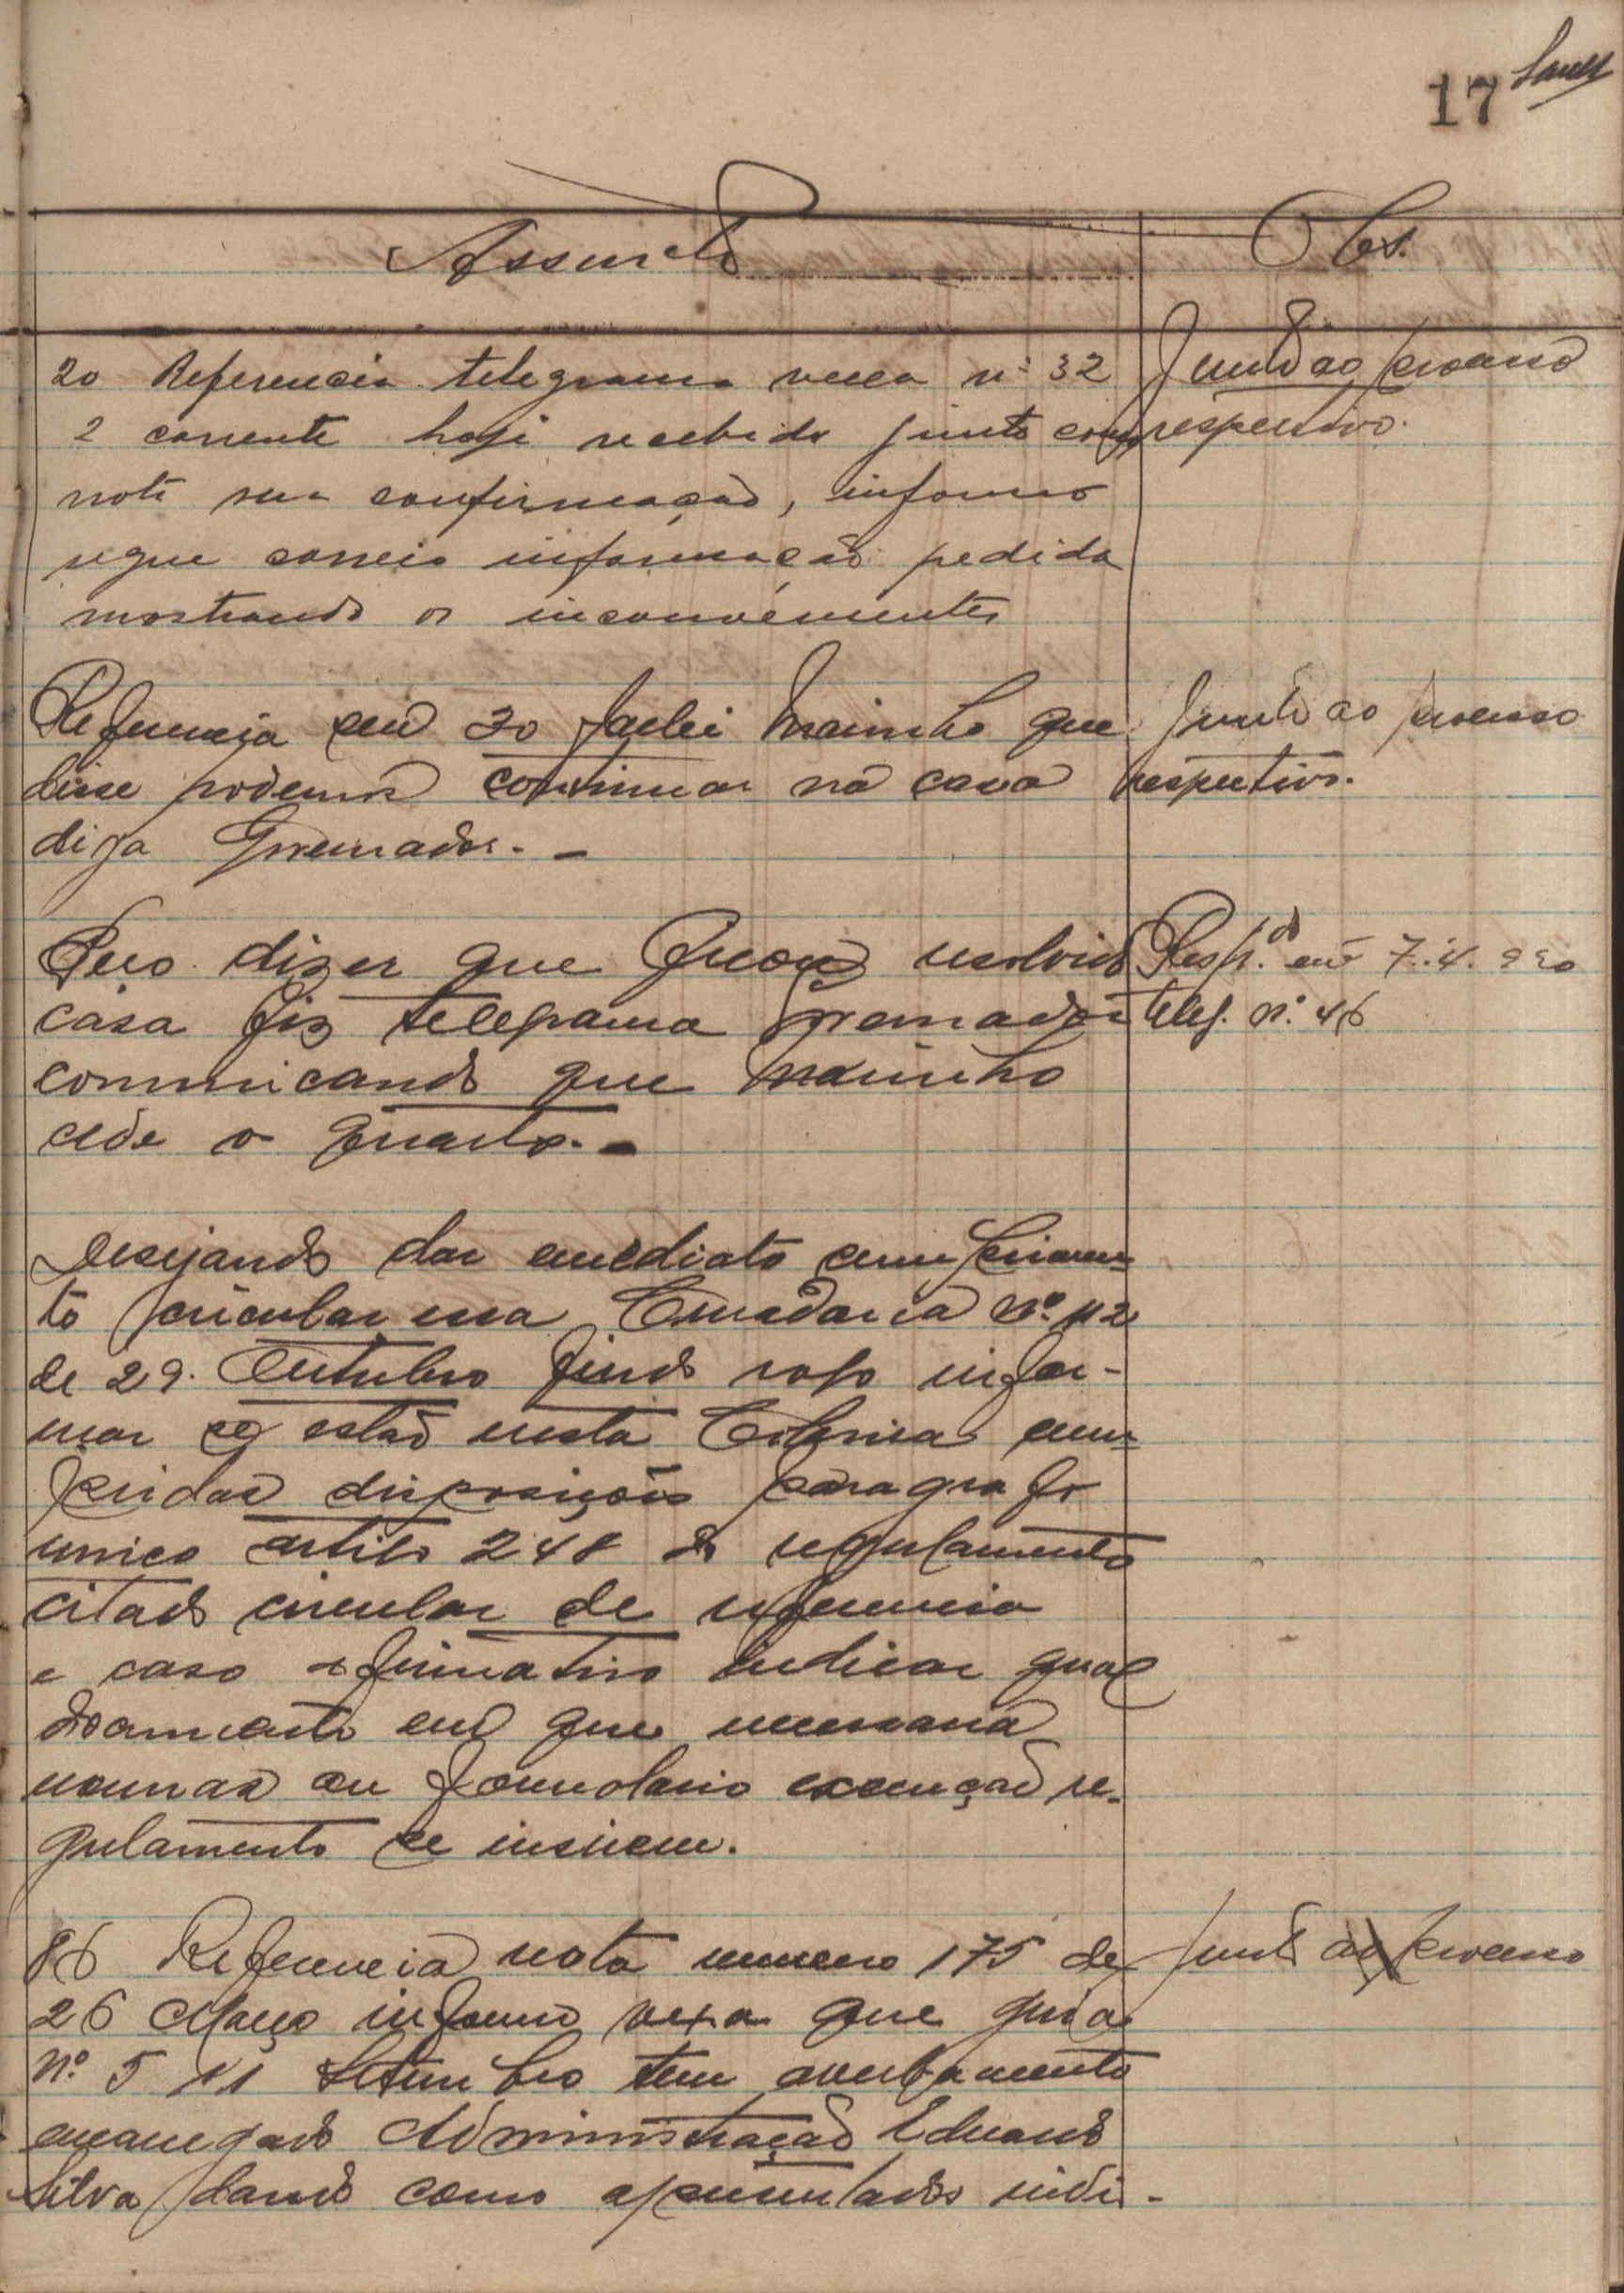 17
Assunto
Obs.
20 Referencia telegrama vexa nº 32
2 corrente hoje recebido junto com
nota sua confirmação, informo
segue correio informação pedida
mostrando os inconvenientes
Junto ao processo
respectivo.
Referencia seu 30 falei Marinho que
disse podemos continuar na casa
diga Governador. -
Junto ao processo
respectivo.
Peço dizer que resolvido
casa fiz telegrama Governador
comunicando que Marinho
cede o quarto. -
Resp.do em 7.4.930
teleg. nº 46
Desejando dar imediato cumprimen=
to circular essa Curadoria nº 112
de 29. Outubro findo rogo infor-
mar se estão nesta Colonia cum=
pridas disposições paragrafo
unico artigo 248 do regulamento
citado circular de referencia
e caso afirmativo indicar qual
documento em que necessaria
normas ou formolario execução re-
gulamento se inserem.
86 Referencia nota numero 175 de
26 Março informo vexa que guia
nº 5 11 Setembro tem averbamento
encarregado Administração Eduardo
Silva dando como apresentados indi-
Junto ao processo